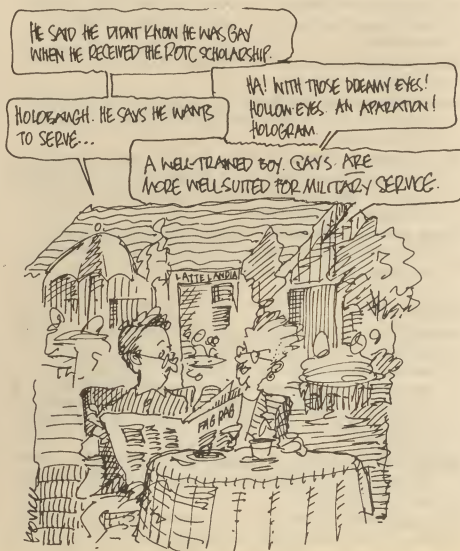 HE SAID HE DIDNT KNOW HE WAS GAY
WHEN HE RECEIVED THE ROTC SCHOLARSHIP.
HOLOBAUGH. HE SAYS HE WANTS
TO SERVE...
HA! WITH THOSE DREAMY EYES!
HOLLOW EYES. AN APARATION!
HOLOGRAM.
A WELL-TRAINED BOY. GAYS ARE
MORE WELL SUITED FOR MILITARY SERVICE.
LATTELANDIA
FAG RAG